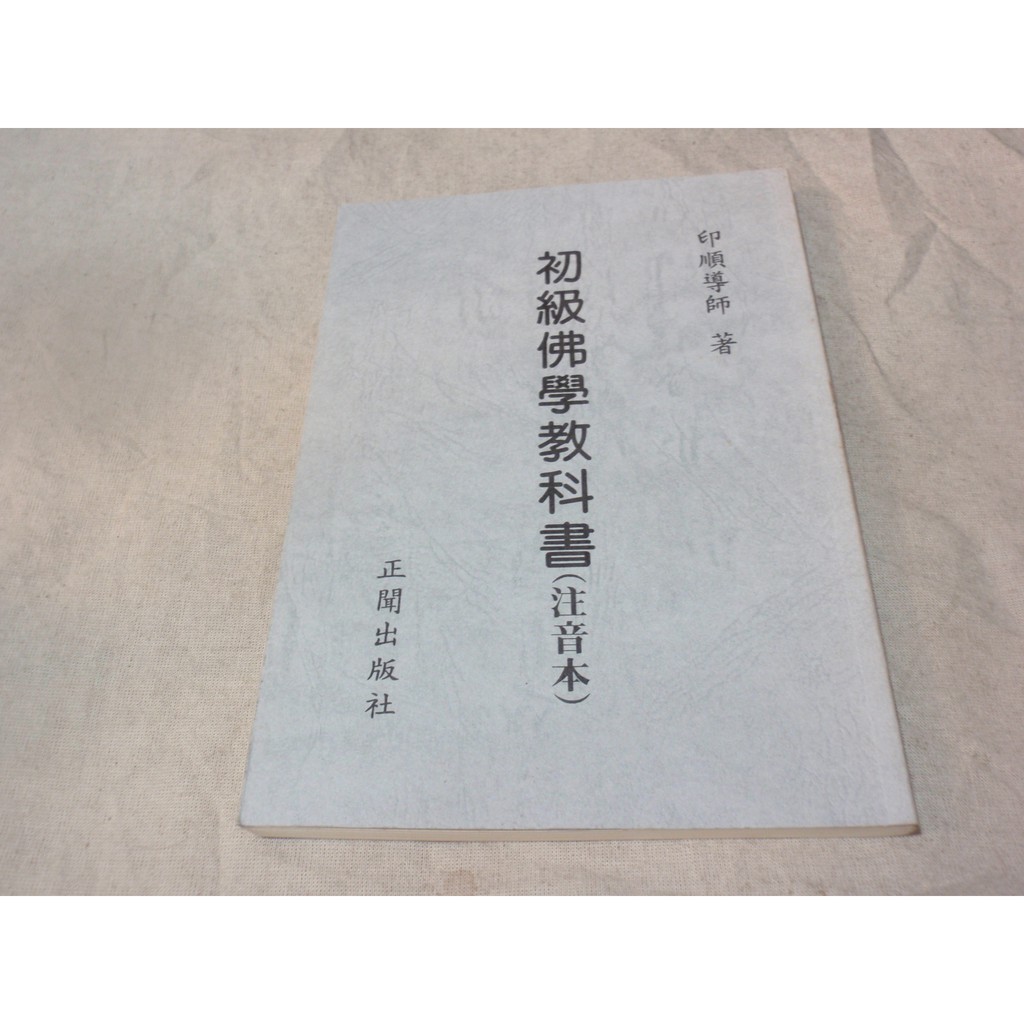 印順導師 著
初級佛學教科書(注音本)
正聞出版社